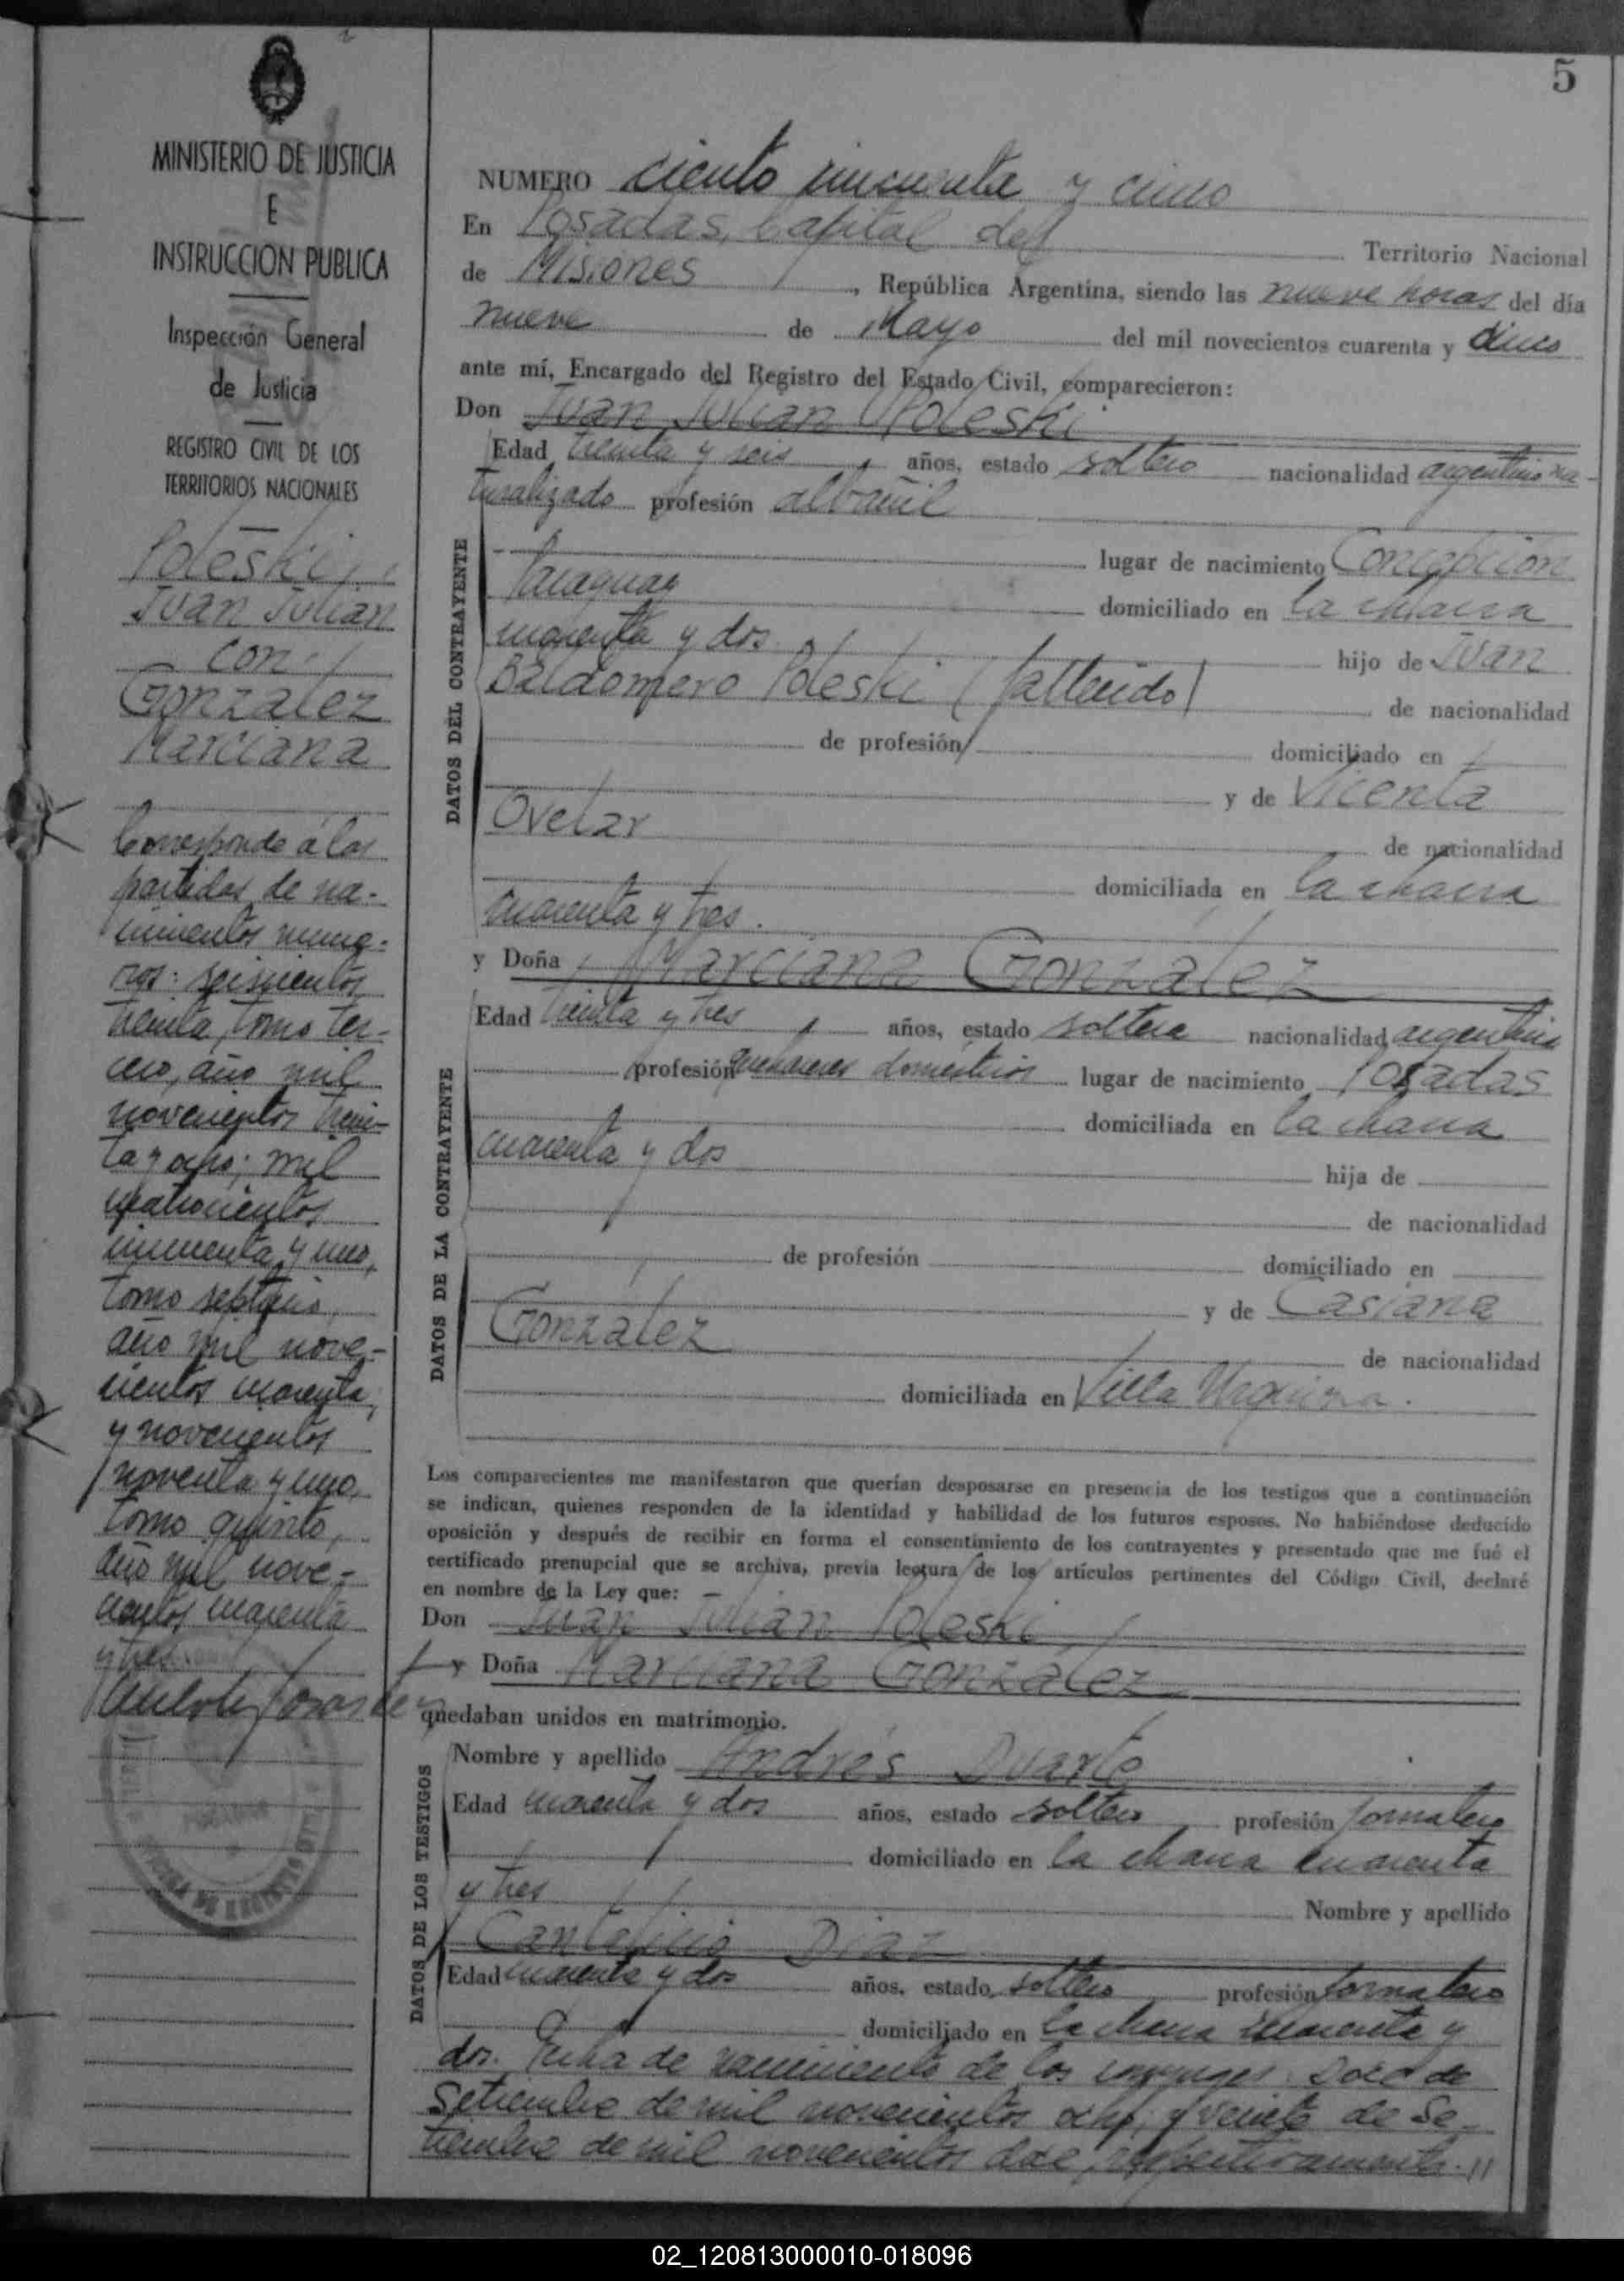 5
MINISTERIO DE JUSTICIA
E
INSTRUCCION PUBLICA
Inspección General
de Justicia
REGISTRO CIVIL DE LOS
TERRITORIOS NACIONALES
Poleski,
Juan Julian
con
Gonzalez
Marciana
Corresponde á las
partidas de na-
cimientos nume-
ros: seiscientos
treinta, tomo ter-
cero, año mil
novecientos trein-
ta y ocho; mil
cuatrocientos
cincuenta y uno,
tomo septimo,
año mil nove-
cientos cuarenta,
y novecientos
noventa y uno,
tomo quinto,
año mil nove-
cientos cuarenta
y tres
NUMERO ciento cincuenta y cinco
En Posadas, Capital del Territorio Nacional
de Misiones, República Argentina, siendo las nueve horas del día
nueve de Mayo del mil novecientos cuarenta y cinco
ante mí, Encargado del Registro del Estado Civil, comparecieron:
Don Juan Julian Poleski
DATOS DEL CONTRAYENTE
Edad treinta y seis años, estado soltero nacionalidad argentino na-
turalizado profesión albañil
lugar de nacimiento Concepcion
Paraguay domiciliado en la chacra
cuarenta y dos hijo de Juan
Baldomero Poleski (fallecido) de nacionalidad
de profesión domiciliado en
y de Vicenta
Ovelar de nacionalidad
domiciliada en la chacra
cuarenta y tres.
y Doña Marciana Gonzalez
DATOS DE LA CONTRAYENTE
Edad treinta y tres años, estado soltera nacionalidad argentina
profesión quehaceres domésticos lugar de nacimiento Posadas
domiciliada en la chacra
cuarenta y dos hija de
de nacionalidad
de profesión domiciliado en
y de Casiana
Gonzalez de nacionalidad
domiciliada en Villa Urquiza.
Los comparecientes me manifestaron que querían desposarse en presencia de los testigos que a continuación
se indican, quienes responden de la identidad y habilidad de los futuros esposos. No habiéndose deducido
oposición y después de recibir en forma el consentimiento de los contrayentes y presentado que me fué el
certificado prenupcial que se archiva, previa lectura de los artículos pertinentes del Código Civil, declaré
en nombre de la Ley que:
Don Juan Julian Poleski
y Doña Marciana Gonzalez
quedaban unidos en matrimonio.
DATOS DE LOS TESTIGOS
Nombre y apellido Andrés Duarte
Edad cuarenta y dos años, estado soltero profesión jornalero
domiciliado en la chacra cuarenta
y tres Nombre y apellido
Cantalicio Diaz
Edad cuarenta y dos años, estado soltero profesión jornalero
domiciliado en la chacra cuarenta y
dos. Fecha de nacimiento de los conyuges: doce de
Setiembre de mil novecientos ocho, y veinte de Se-
tiembre de mil novecientos doce, respectivamente.//
02_120813000010-018096